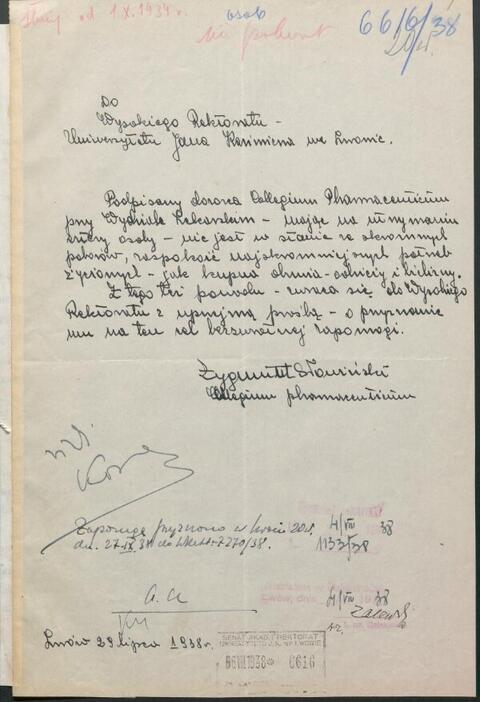 służy od 1.X.1934 r.
osob
nie pobierał
6616/38
Do
Wysokiego Rektoratu -
Uniwersytetu Jana Kazimierza we Lwowie.
Podpisany dozorca Collegium Pharmaceuticum
przy Wydziale Lekarskim - mając na utrzymaniu
cztery osoby - nie jest w stanie ze skromnych
poborów, zaspokoić najskromniejszych potrzeb
życiowych - jak kupna obuwia - odzieży i bielizny.
Z tego też powodu - zwraca się do Wysokiego
Rektoratu z uprzejmą prośbą - o przyznanie
mu na ten cel bezzwrotnej zapomogi.
Zygmunt Sławiński
Collegium pharmaceuticum
Zapomogę przyznano w kwocie 20 zł.
dn. 27.IX.38
4/VIII 38
1133/38
a.a
4/VIII 38
Lwów 29 lipca 1938 r.
SENAT AKAD. I REKTORAT
UNIWERSYTETU J. K. WE LWOWIE
VIII 1938 * 6616